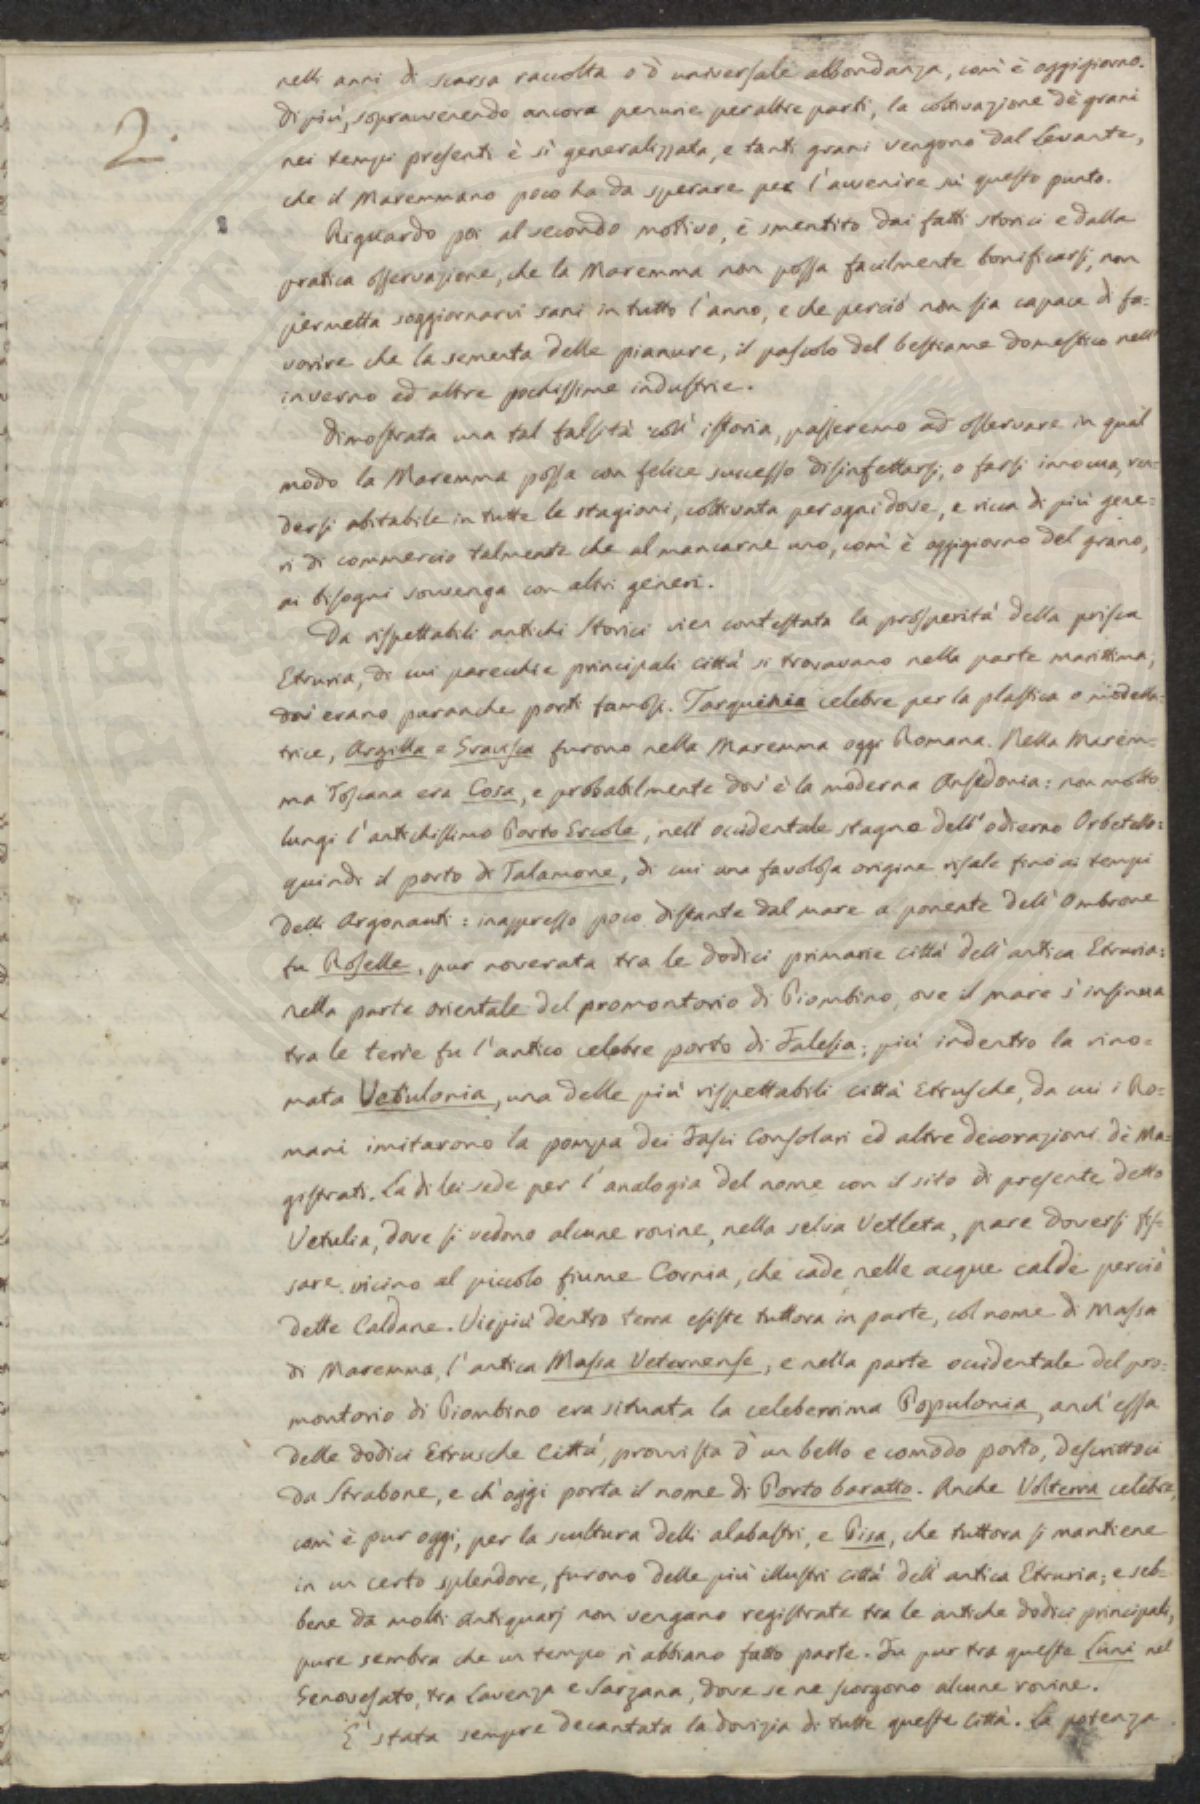 2.
nelli anni di scarsa raccolta o d'universale abbondanza, com'è oggigiorno.
di più, sopravvenendo ancora penurie per altre parti, la coltivazione de' grani
nei tempi presenti è sì generalizzata, e tanti grani vengono dal Levante,
che il Maremmano poco ha da sperare per l'avvenire su questo punto.
Riguardo poi al secondo motivo, è smentito dai fatti storici e dalla
pratica osservazione, che la Maremma non possa facilmente bonificarsi, non
permetta soggiornarvi sani in tutto l'anno, e che perciò non sia capace di fa=
vorire che la sementa delle pianure, il pascolo del bestiame domestico nell'
inverno ed altre pochissime industrie.
Dimostrata una tal falsità coll'istoria, passeremo ad osservare in qual
modo la Maremma possa con felice successo disinfettarsi, o farsi innocua, ren=
dersi abitabile in tutte le stagioni, coltivata per ogni dove, e ricca di più gene=
ri di commercio talmente che al mancarne uno, com'è oggigiorno del grano,
ai bisogni sovvenga con altri generi.
Da rispettabili antichi Storici vien contestata la prosperità della prisca
Etruria, di cui parecchie principali città si trovavano nella parte marittima,
dov'erano puranche porti famosi. Tarquinia celebre per la plastica o modella=
trice, Argilla e Gravisca furono nella Maremma oggi Romana. Nella Marem=
ma Toscana era Cosa, e probabilmente dov'è la moderna Ansedonia: non molto
lungi l'antichissimo Porto Ercole, nell'occidentale stagno dell'odierno Orbetello:
quindi il porto di Talamone, di cui una favolosa origine risale fino ai tempi
delli Argonauti: inappresso poco distante dal mare a ponente dell'Ombrone
fu Roselle, pur noverata tra le dodici primarie città dell'antica Etruria:
nella parte orientale del promontorio di Piombino, ove il mare s'insinua
tra le terre fu l'antico celebre porto di Falesia; più indentro la rino=
mata Vetulonia, una delle più rispettabili città Etrusche, da cui i Ro=
mani imitarono la pompa dei Fasci Consolari ed altre decorazioni de' Ma=
gistrati. La di lei sede per l'analogia del nome con il sito di presente detto
Vetulia, dove si vedono alcune rovine, nella selva Vetleta, pare doversi fis=
sare vicino al piccolo fiume Cornia, che cade nelle acque calde perciò
dette Caldane. Viepiù dentro terra esiste tuttora in parte, col nome di Massa
di Maremma, l'antica Massa Veternense, e nella parte occidentale del pro=
montorio di Piombino era situata la celeberrima Populonia, anch'essa
delle dodici Etrusche Città, provvista d'un bello e comodo porto, descrittoci
da Strabone, e ch'oggi porta il nome di Porto baratto. Anche Volterra celebre,
com'è pur oggi, per la scultura delli alabastri, e Pisa, che tuttora si mantiene
in un certo splendore, furono delle più illustri città dell'antica Etruria; e seb=
bene da molti Antiquarj non vengano registrate tra le antiche dodici principali,
pure sembra che un tempo vi abbiano fatto parte. Fu pur tra queste Luni nel
Genovesato, tra Lavenza e Sarzana, dove se ne scorgono alcune rovine.
E' stata sempre decantata la dovizia di tutte queste Città. La potenza